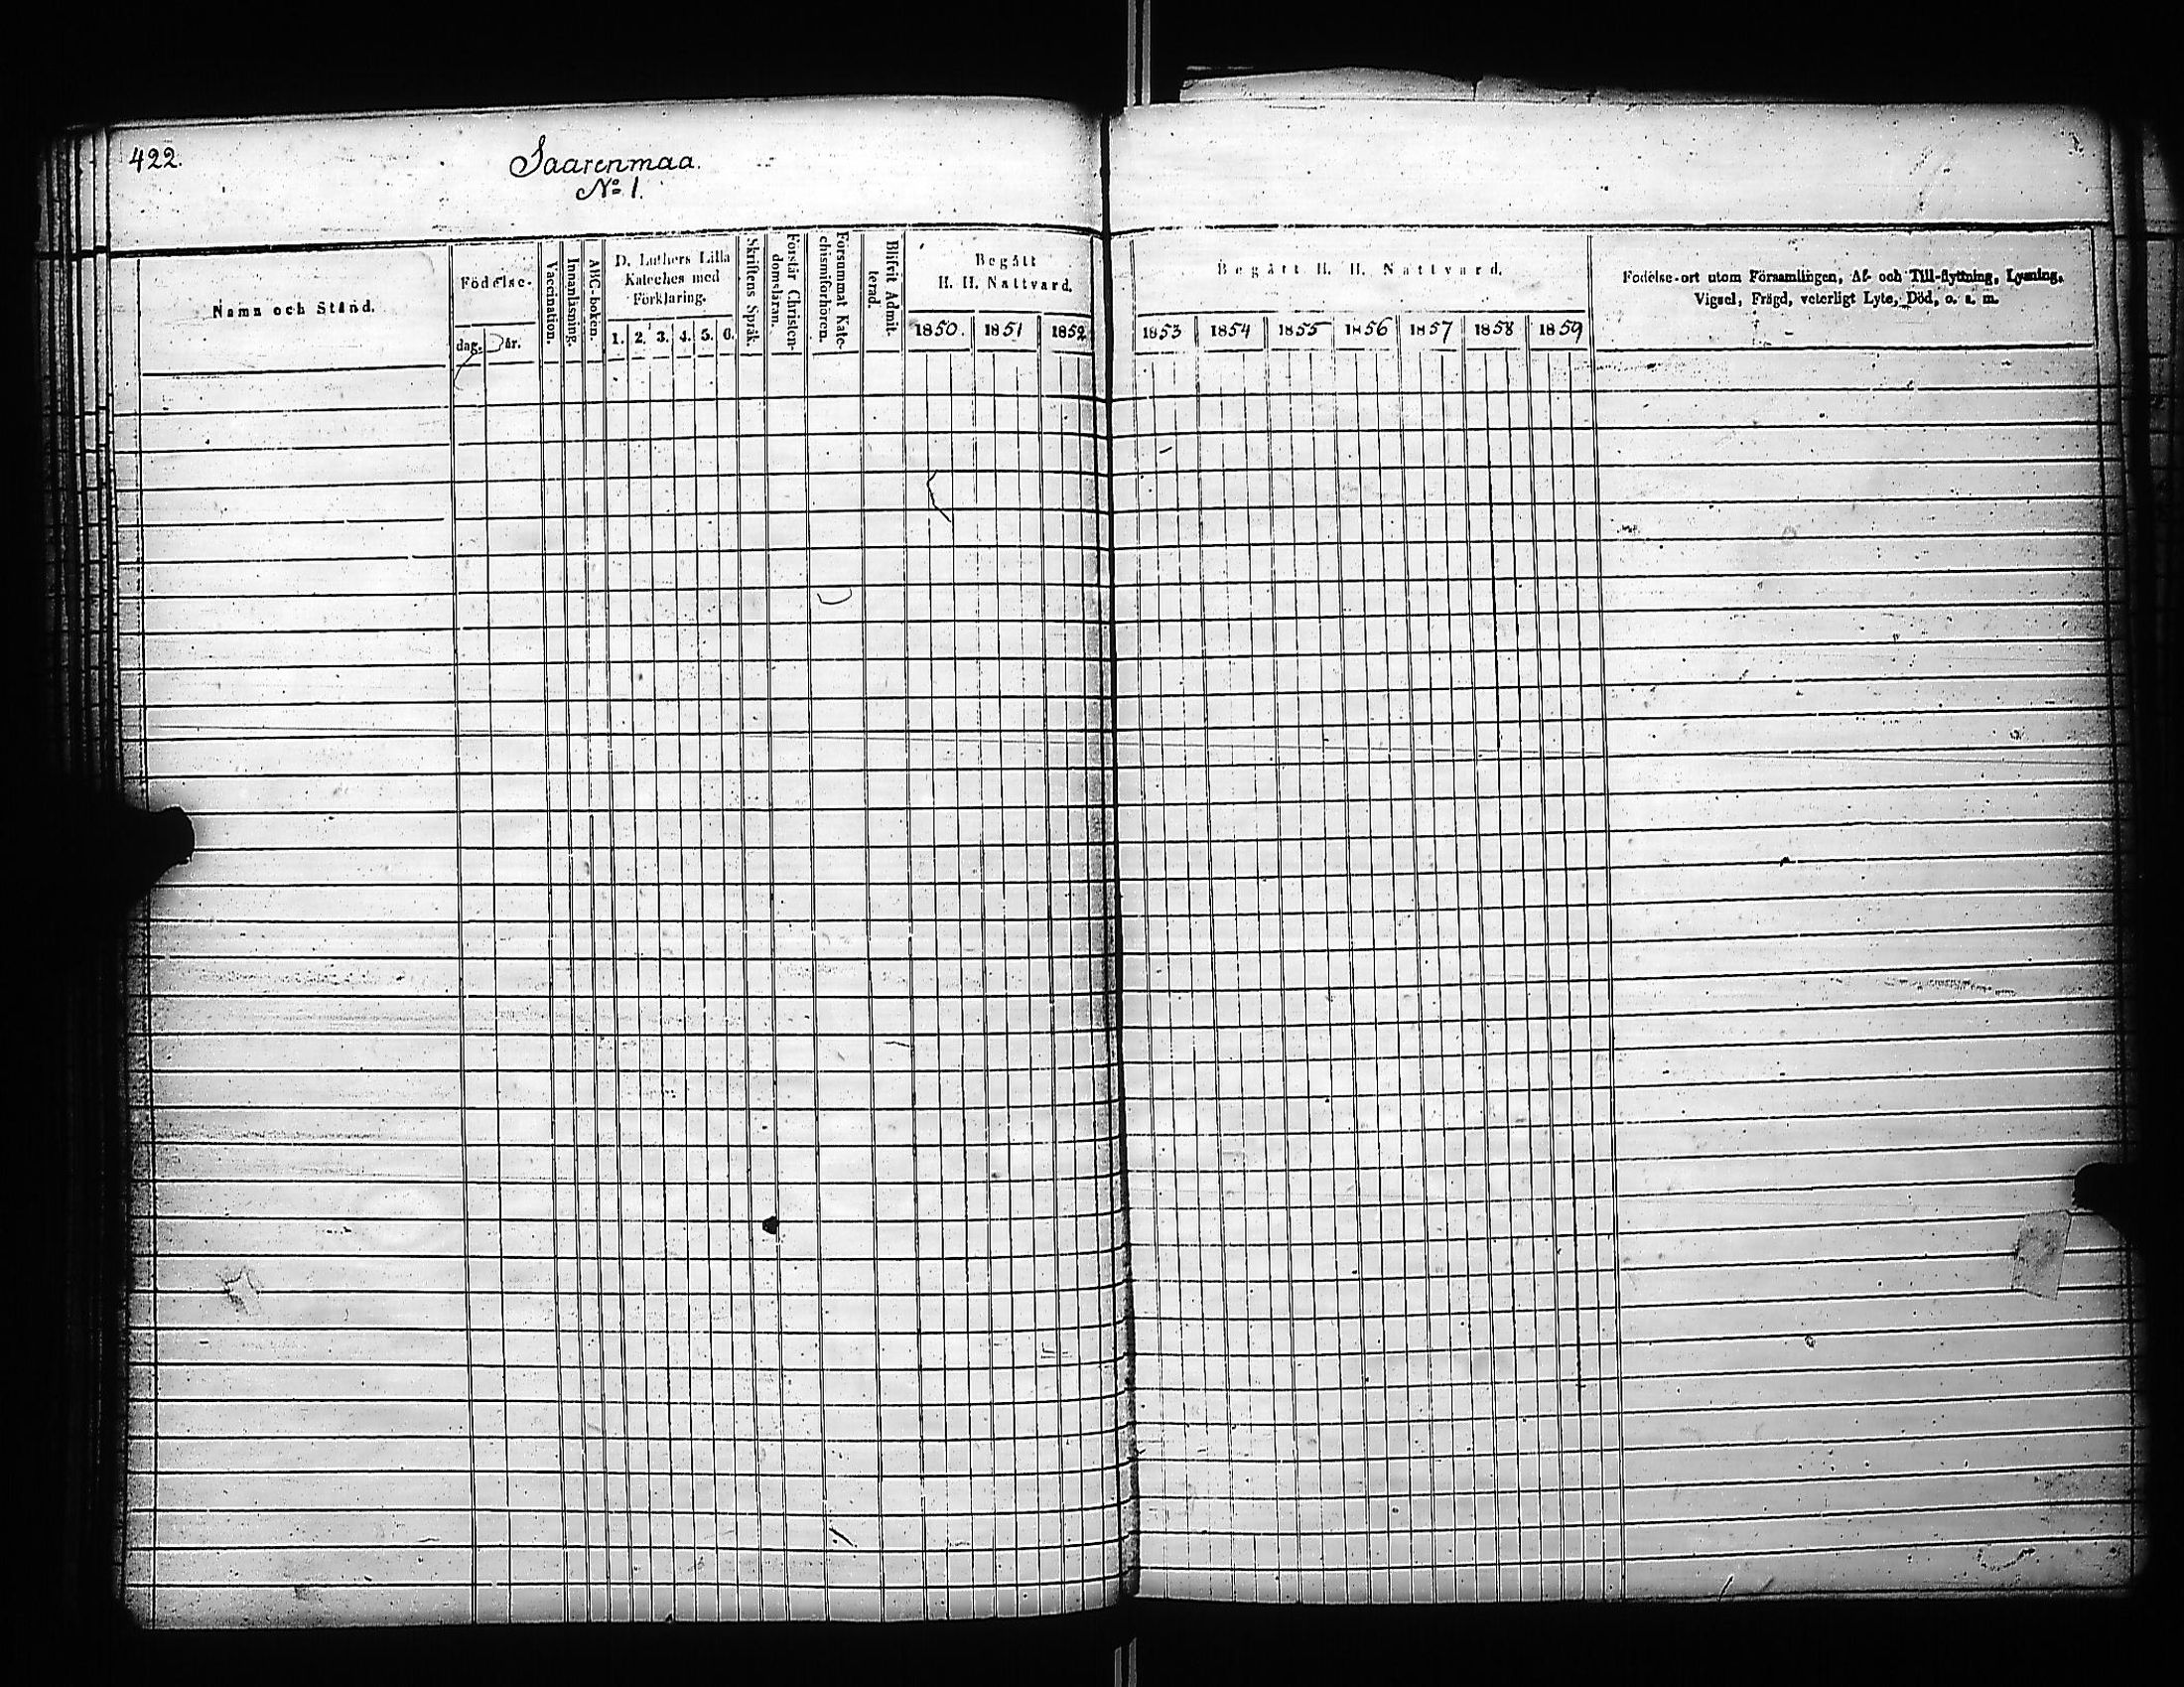 422.
Saarenmaa.
No 1.
Namn och Stånd.
Födelse-
dag. år.
Vaccination.
Innanläsning.
ABC-boken.
D. Luthers Lilla
Kateches med
Förklaring.
1. 2. 3. 4. 5. 6.
Skriftens Språk.
Förstår Christen-
domsläran.
Försummat Kate-
chismiförhören.
Blifvit Admit-
terad.
Begått
H. H. Nattvard.
1850. 1851 1852
Begått H. H. Nattvard.
1853 1854 1855 1856 1857 1858 1859
Födelse-ort utom Församlingen, Af- och Till-flyttning, Lysning,
Vigsel, Frägd, veterligt Lyte, Död, o. s. m.